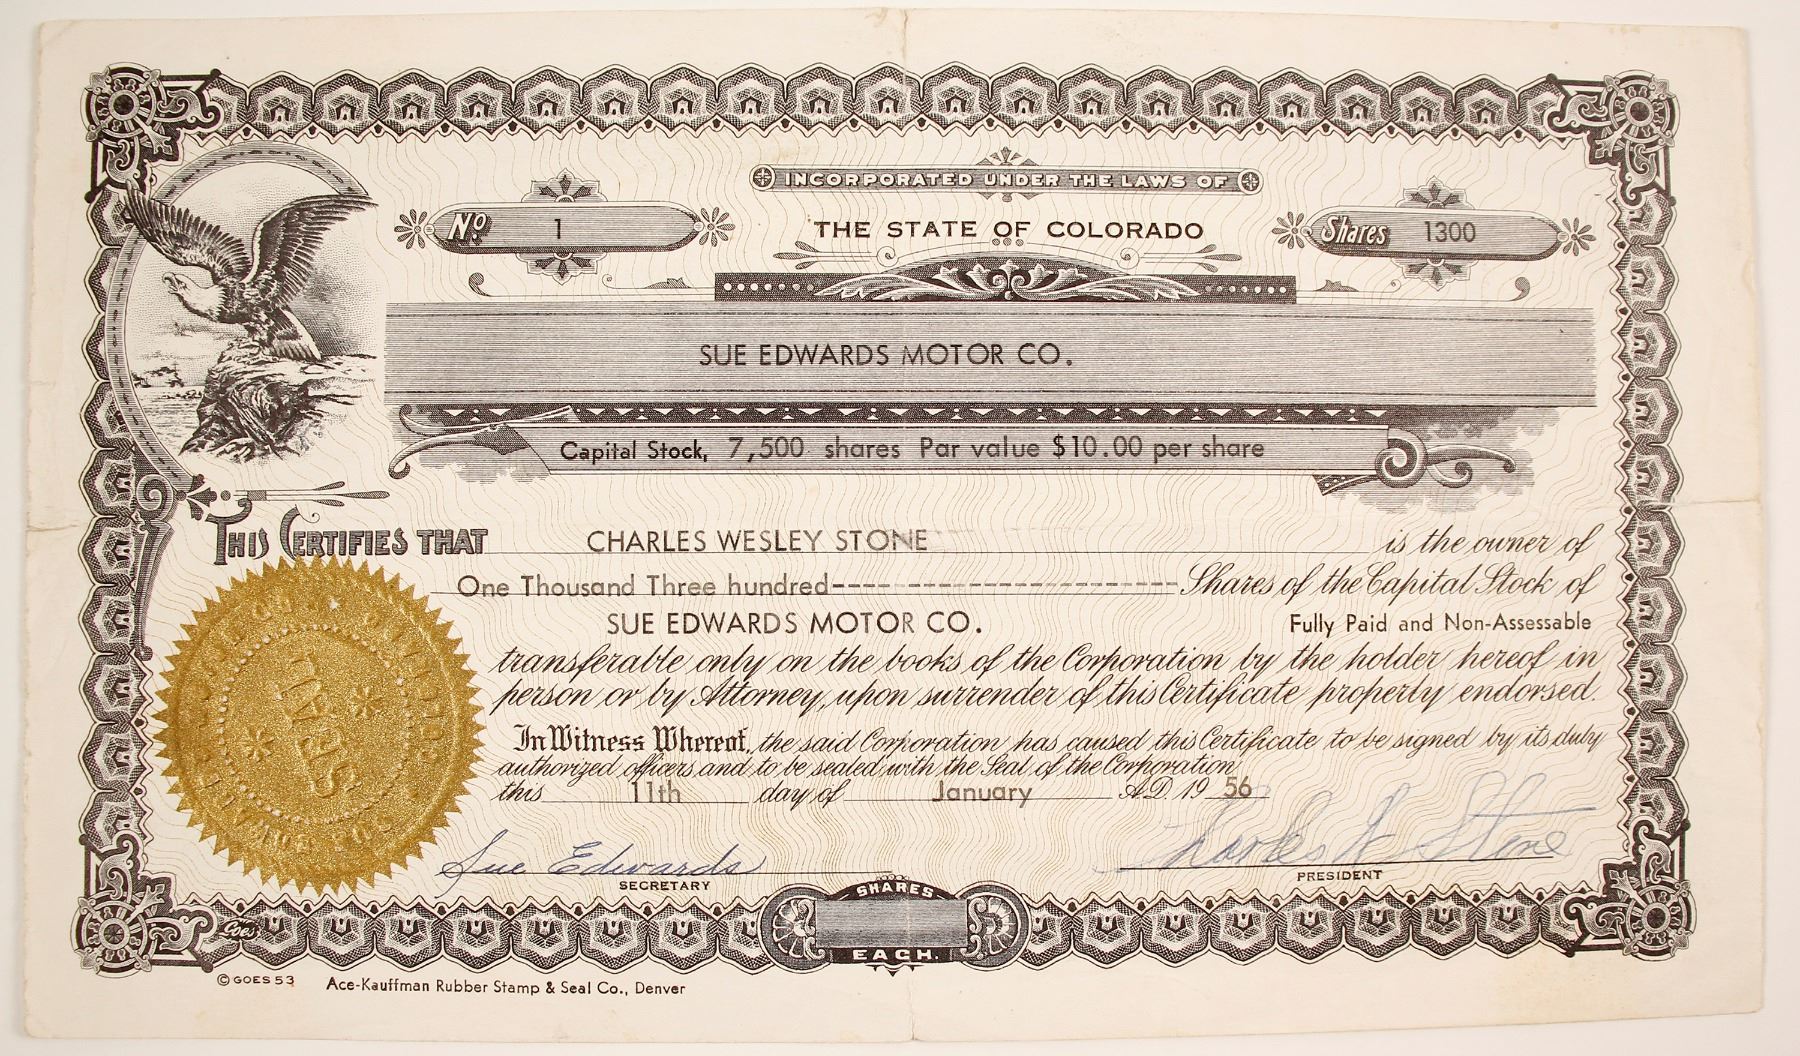 INCORPORATED UNDER THE LAWS OF
No 1
THE STATE OF COLORADO
Shares 1300
SUE EDWARDS MOTOR CO.
Capital Stock, 7,500 shares Par value $10.00 per share
THIS CERTIFIES THAT CHARLES WESLEY STONE is the owner of
One Thousand Three hundred-------------------------- Shares of the Capital Stock of
SUE EDWARDS MOTOR CO. Fully Paid and Non-Assessable
transferable only on the books of the Corporation by the holder hereof in
person or by Attorney, upon surrender of this Certificate properly endorsed.
In Witness Whereof, the said Corporation has caused this Certificate to be signed by its duly
authorized officers and to be sealed with the Seal of the Corporation
this 11th day of January A.D. 19 56
Sue Edwards
SECRETARY
Charles W Stone
PRESIDENT
SEAL
SHARES
EACH.
Goes
© GOES 53
Ace-Kauffman Rubber Stamp & Seal Co., Denver